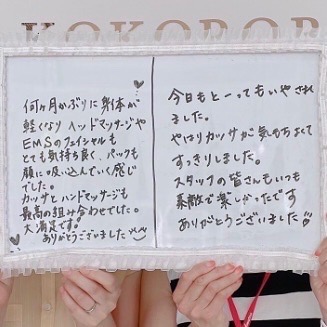 KOKOPOP
何ヶ月かぶりに身体が
軽くなり ヘッドマッサージや
EMSのフェイシャルも
とても気持ち良く、パックも
顔に吸い込んでいく感じ
でした。
カッサとハンドマッサージも
最高の組み合わせでした。
大満足です。
ありがとうございました
今日もとーってもいやされ
ました。
やはりカッサが気持ちよくて
すっきりしました。
スタッフの皆さんもいつも
素敵で楽しかったです
ありがとうございました